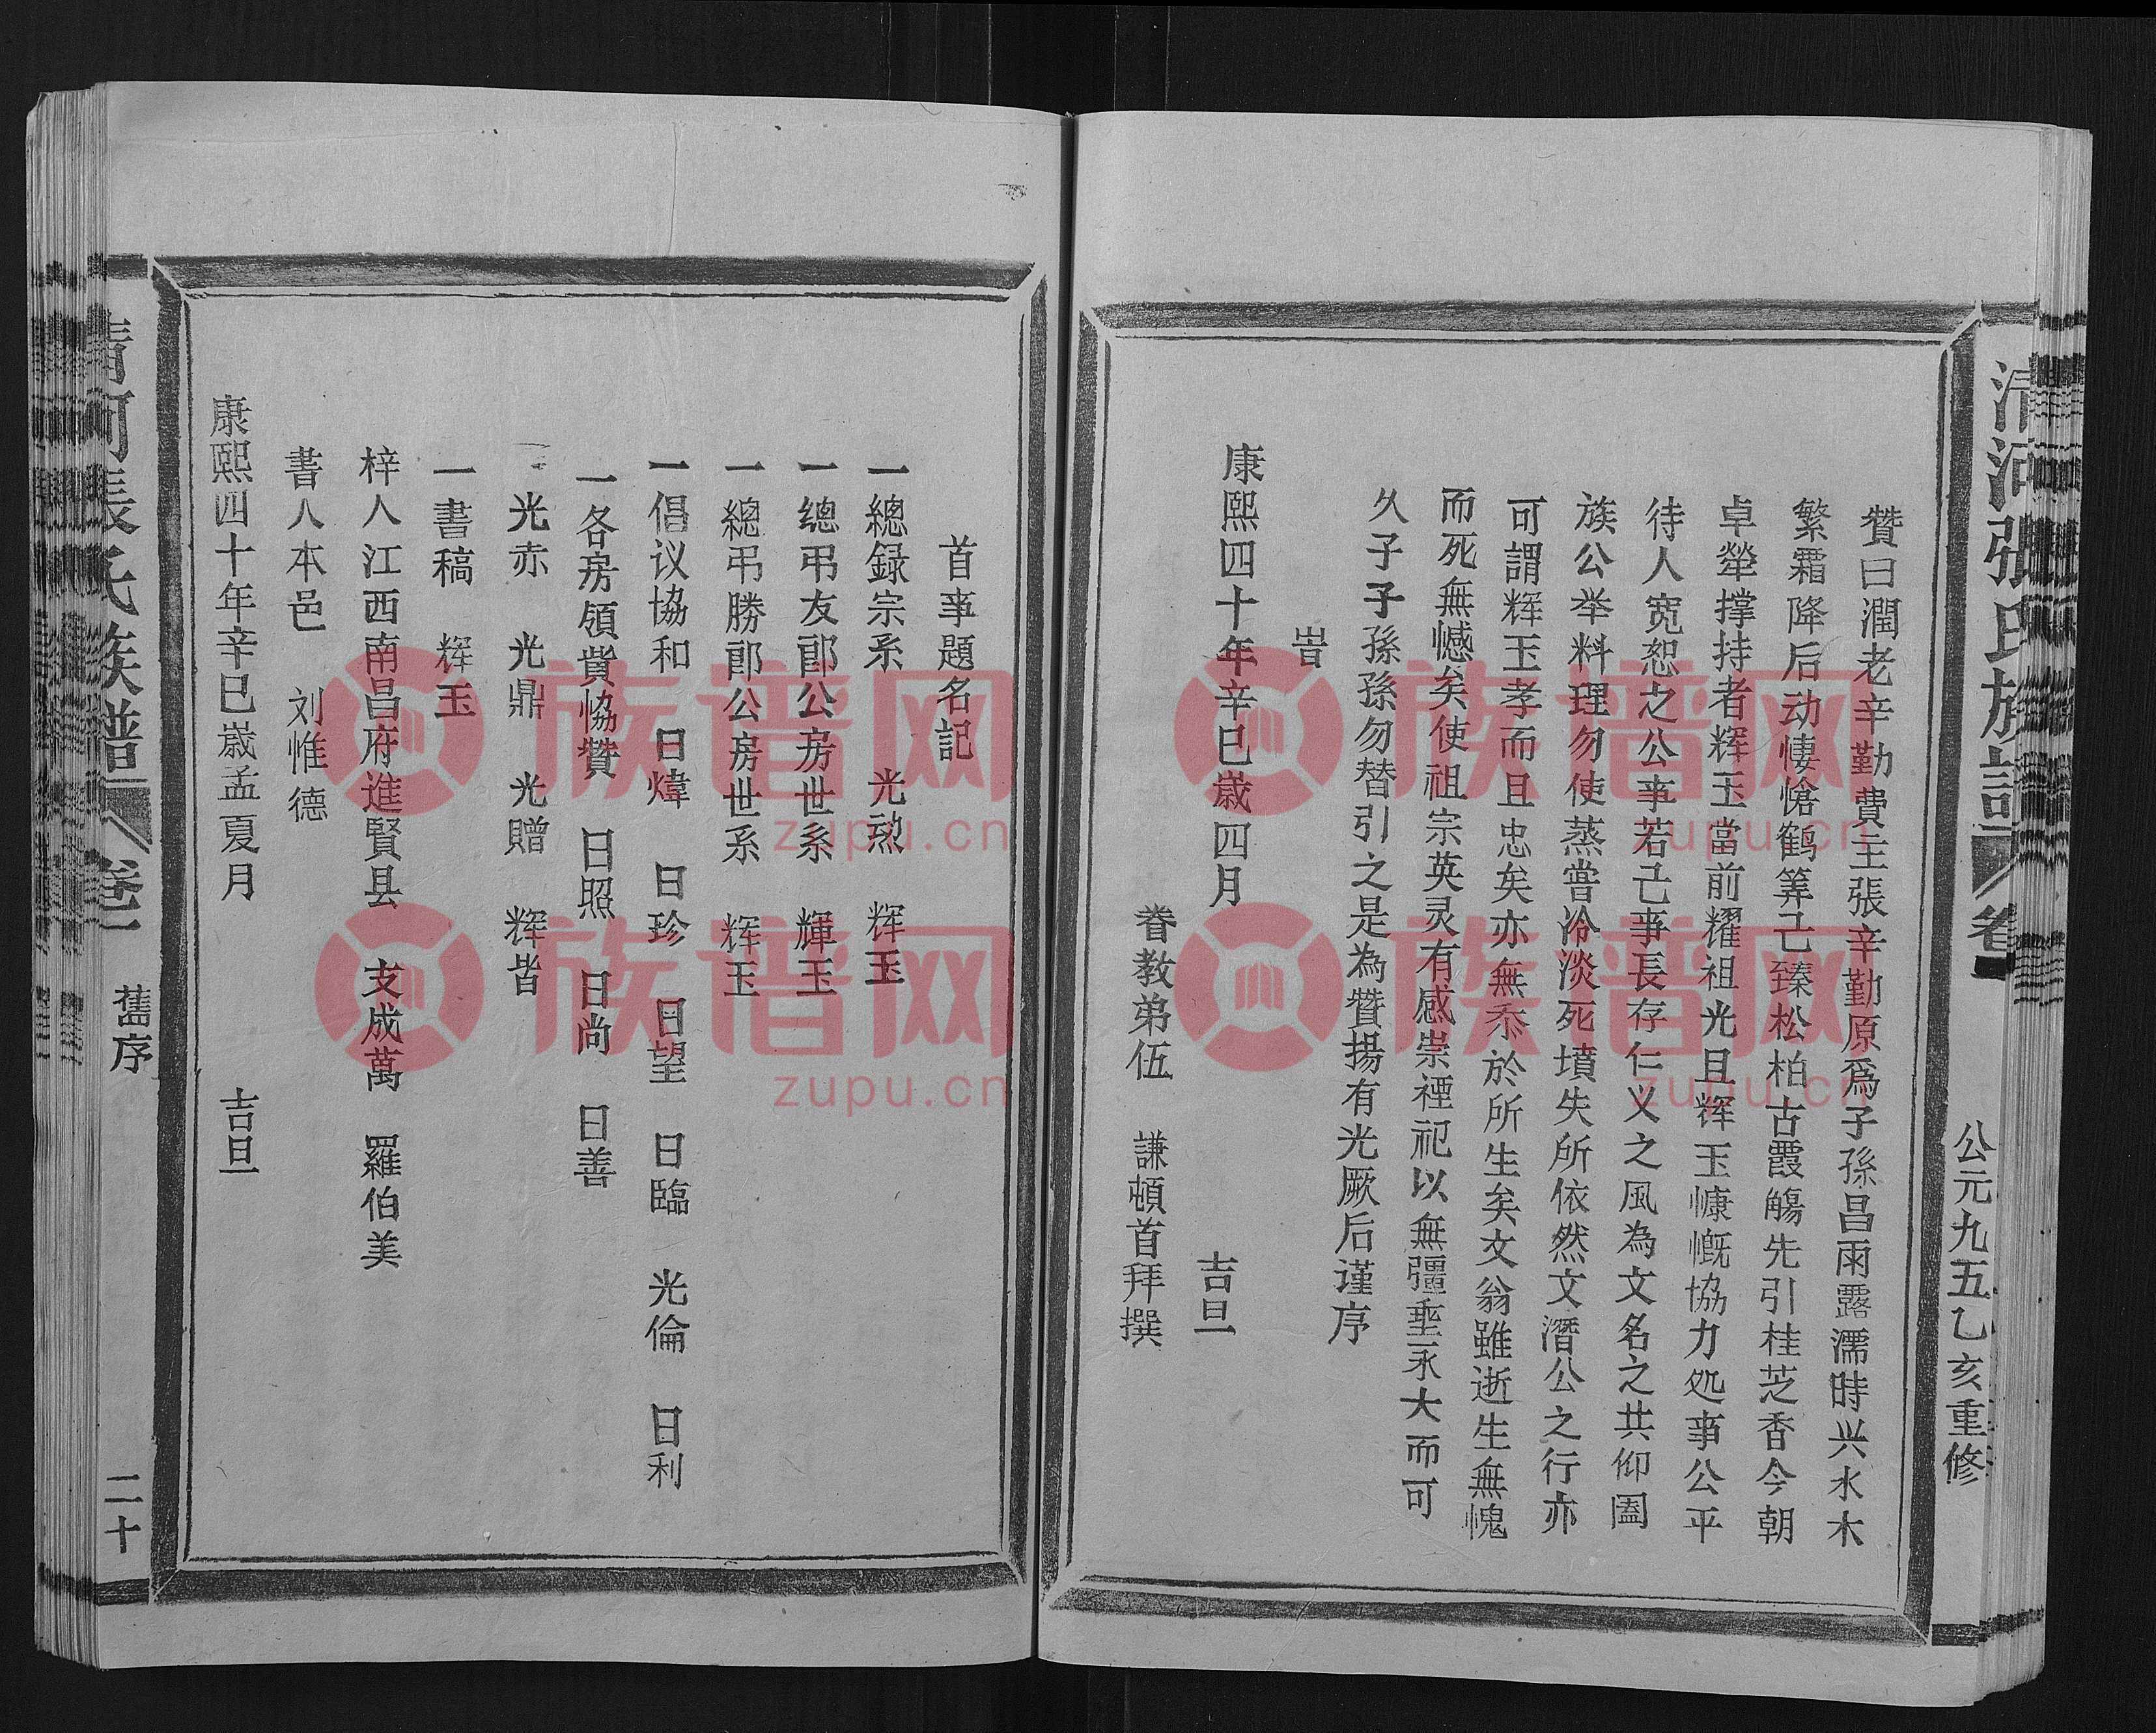 清河張氏族譜 卷一 公元九五乙亥重修
贊曰潤老辛勤費主張辛勤原爲子孫昌雨露濡時兴水木
繁霜降后动悽愴鹤筭己臻松柏古霞觴先引桂芝香今朝
卓犖撑持者辉玉當前耀祖光且辉玉慷慨協力处事公平
待人宽恕之公事若己事長存仁义之風為文名之共仰闔
族公举料理勿使蒸嘗冷淡死墳失所依然文潛公之行亦
可謂辉玉孝而且忠矣亦無忝於所生矣文翁雖逝生無愧
而死無憾矣使祖宗英灵有感崇禋祀以無彊垂永大而可
久子子孫孫勿替引之是為贊揚有光厥后谨序
旹
康熙四十年辛巳歲四月 吉旦
眷教弟伍 謙頓首拜撰
首事題名記
一總録宗系 光勋 辉玉
一總弔友郎公房世系 輝玉
一總弔勝郎公房世系 辉玉
一倡议協和 日煒 日珍 日望 日臨 光倫 日利
一各房領貲協贊 日照 日尚 日善
光赤 光鼎 光贈 辉皆
一書稿 辉玉
梓人江西南昌府進賢县 支成萬 羅伯美
書人本邑 刘惟德
康熙四十年辛巳歲孟夏月 吉旦
清河張氏族譜 卷一 舊序 二十
族谱网
zupu.cn
族谱网
zupu.cn
族谱网
zupu.cn
族谱网
zupu.cn